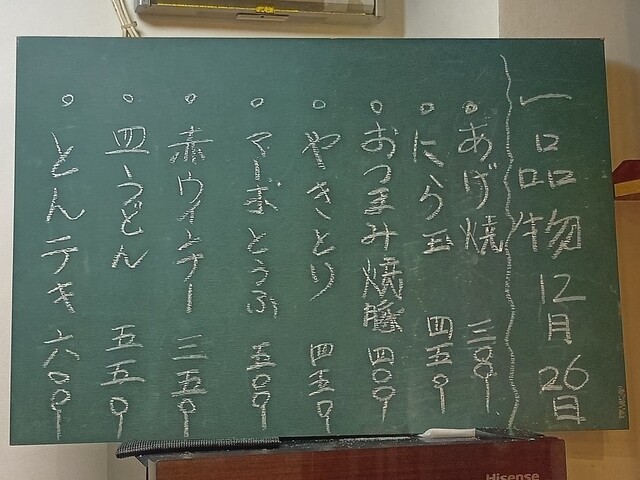 一品物 12月26日
。あげ焼 三〇〇ー
。にら玉 四五〇ー
。おつまみ焼豚 四〇〇ー
。やきとり 四五〇ー
。マーボとうふ 五〇〇ー
。赤ウインナー 三五〇ー
。皿うどん 五五〇ー
。とんテキ 六〇〇ー
Hisense